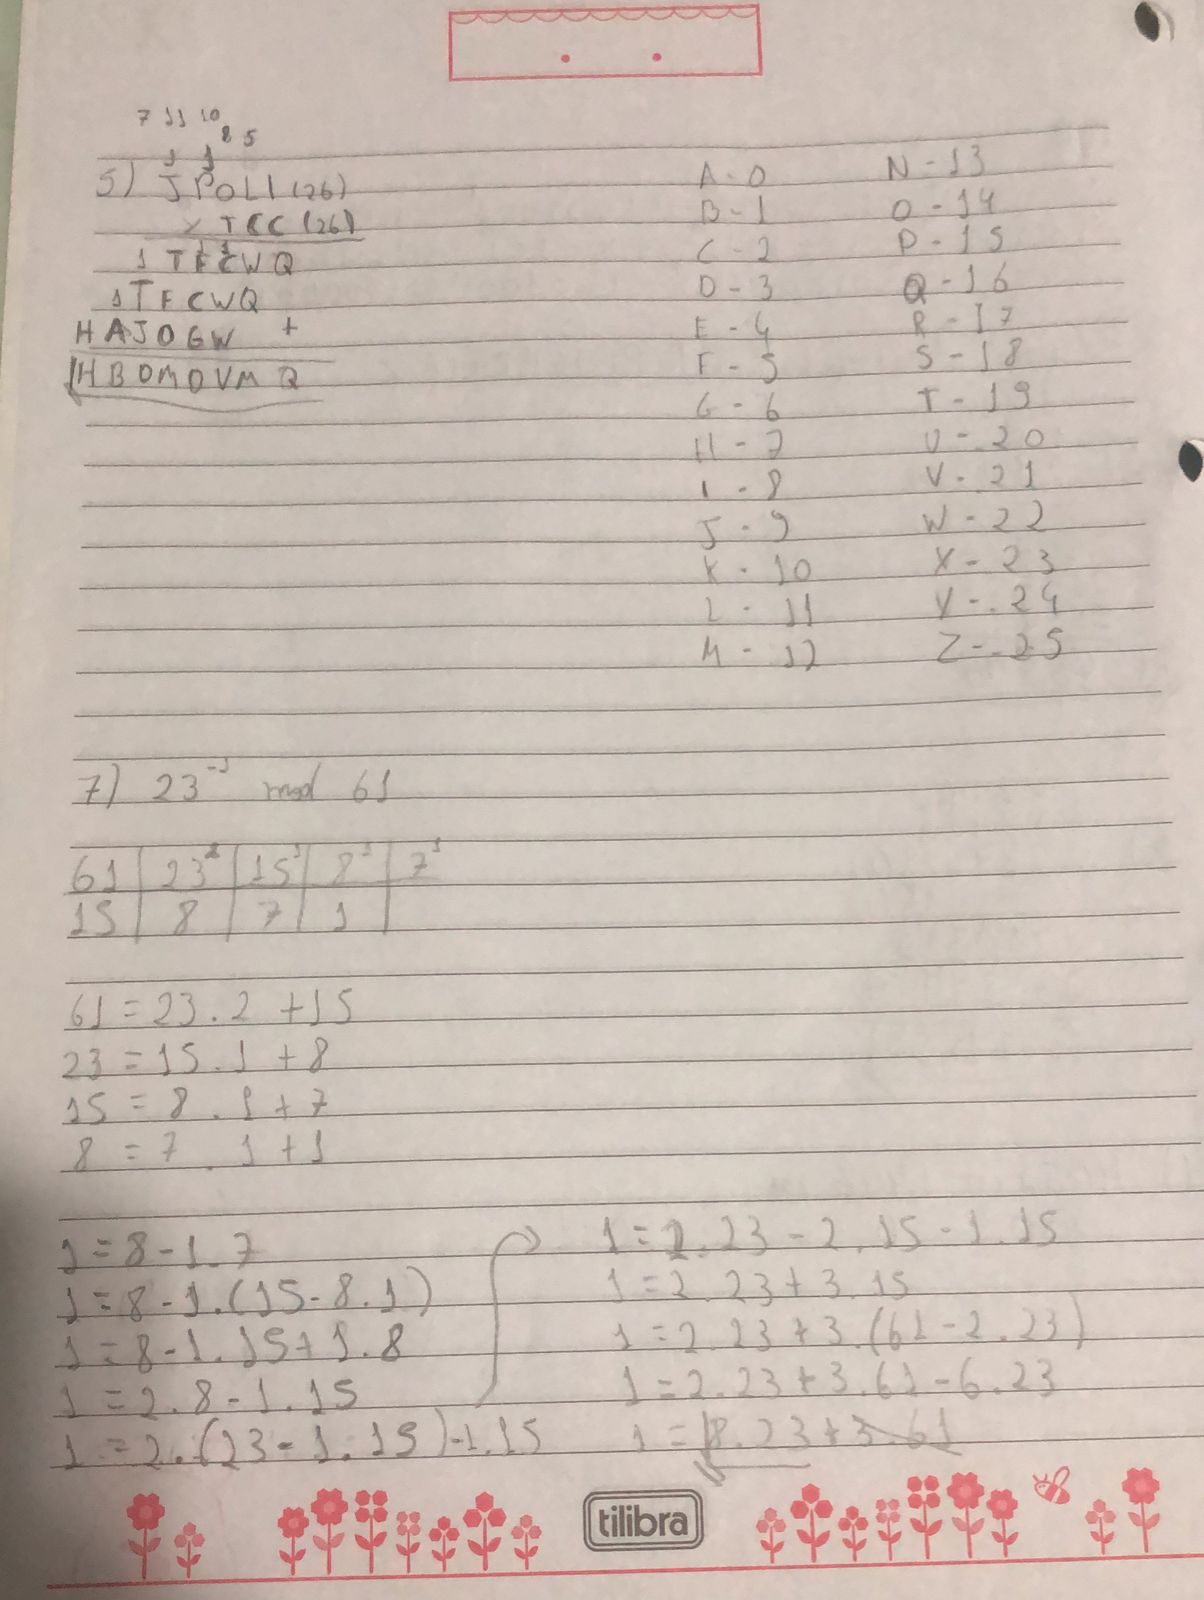 7 11 10
8 5
1 1
5) JPOLI (26)
x TCC (26)
1 1
1 TFCWQ
1TFCWQ
HAJOGW +
HBOMOVMQ
A - 0
B - 1
C - 2
D - 3
E - 4
F - 5
G - 6
H - 7
I - 8
J - 9
K - 10
L - 11
M - 12
N - 13
O - 14
P - 15
Q - 16
R - 17
S - 18
T - 19
U - 20
V - 21
W - 22
X - 23
Y - 24
Z - 25
7) 23⁻¹ mod 61
61 | 23² | 15¹ | 8¹ | 7¹
15 | 8 | 7 | 1 |
61 = 23 . 2 + 15
23 = 15 . 1 + 8
15 = 8 . 1 + 7
8 = 7 . 1 + 1
1 = 8 - 1 . 7
1 = 8 - 1 . (15 - 8 . 1)
1 = 8 - 1 . 15 + 1 . 8
1 = 2 . 8 - 1 . 15
1 = 2 . (23 - 1 . 15) - 1 . 15
1 = 2 . 23 - 2 . 15 - 1 . 15
1 = 2 . 23 + 3 . 15
1 = 2 . 23 + 3 . (61 - 2 . 23)
1 = 2 . 23 + 3 . 61 - 6 . 23
1 = 8 . 23 + 3 . 61
tilibra